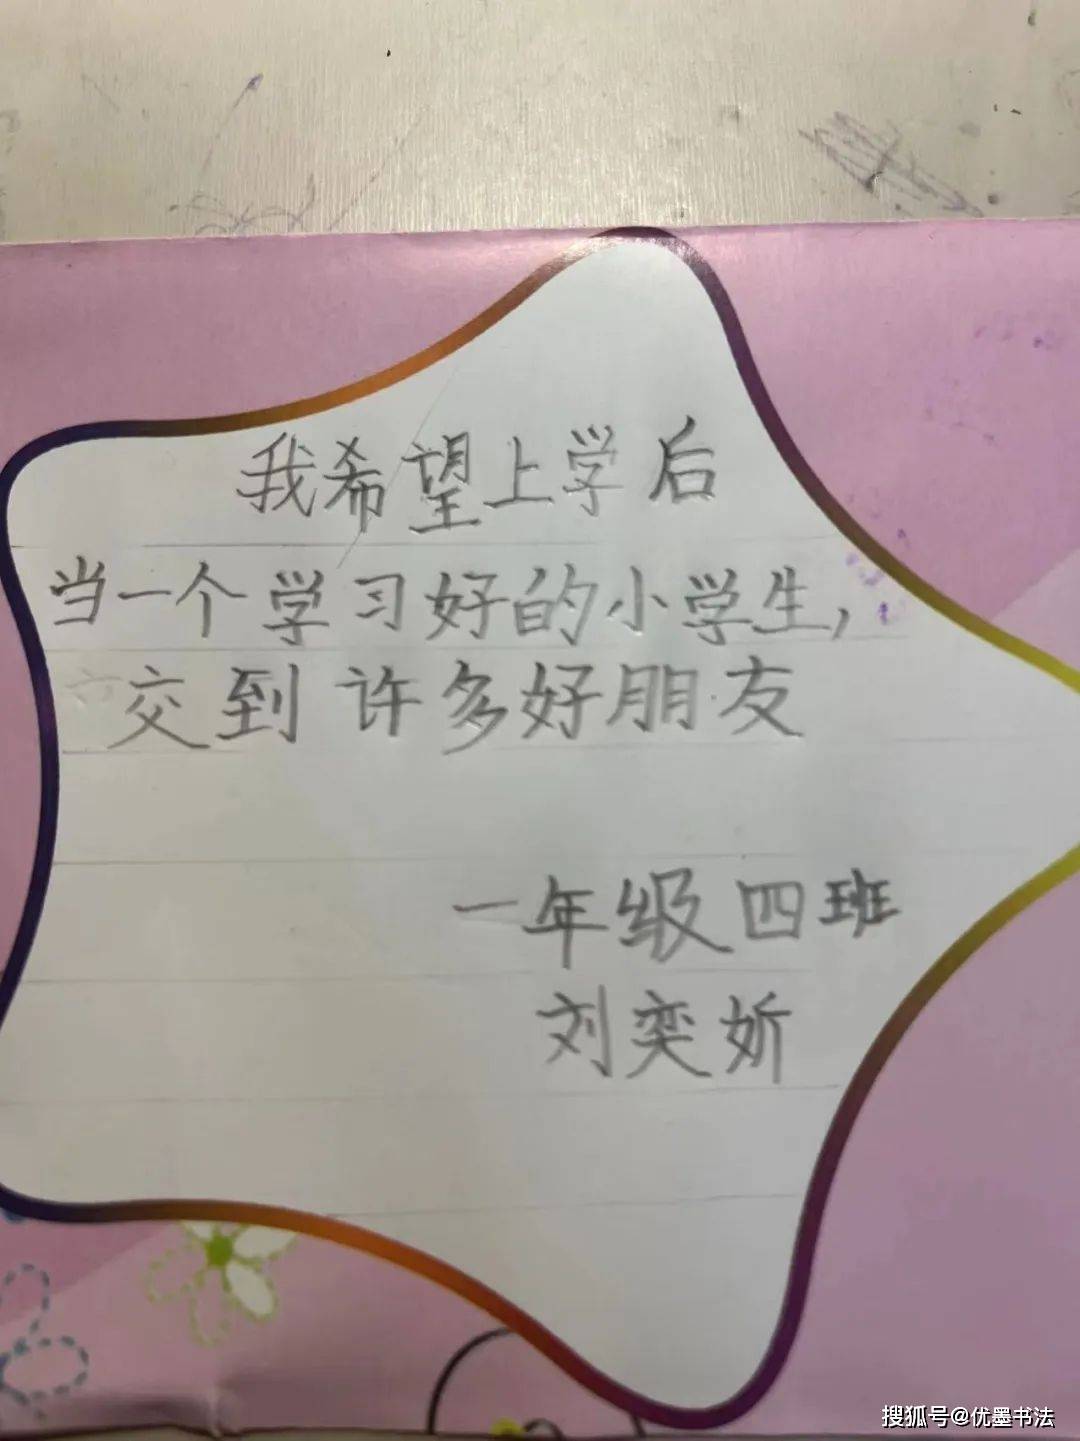 我希望上学后
当一个学习好的小学生，
交到许多好朋友
一年级四班
刘奕妡
搜狐号@优墨书法